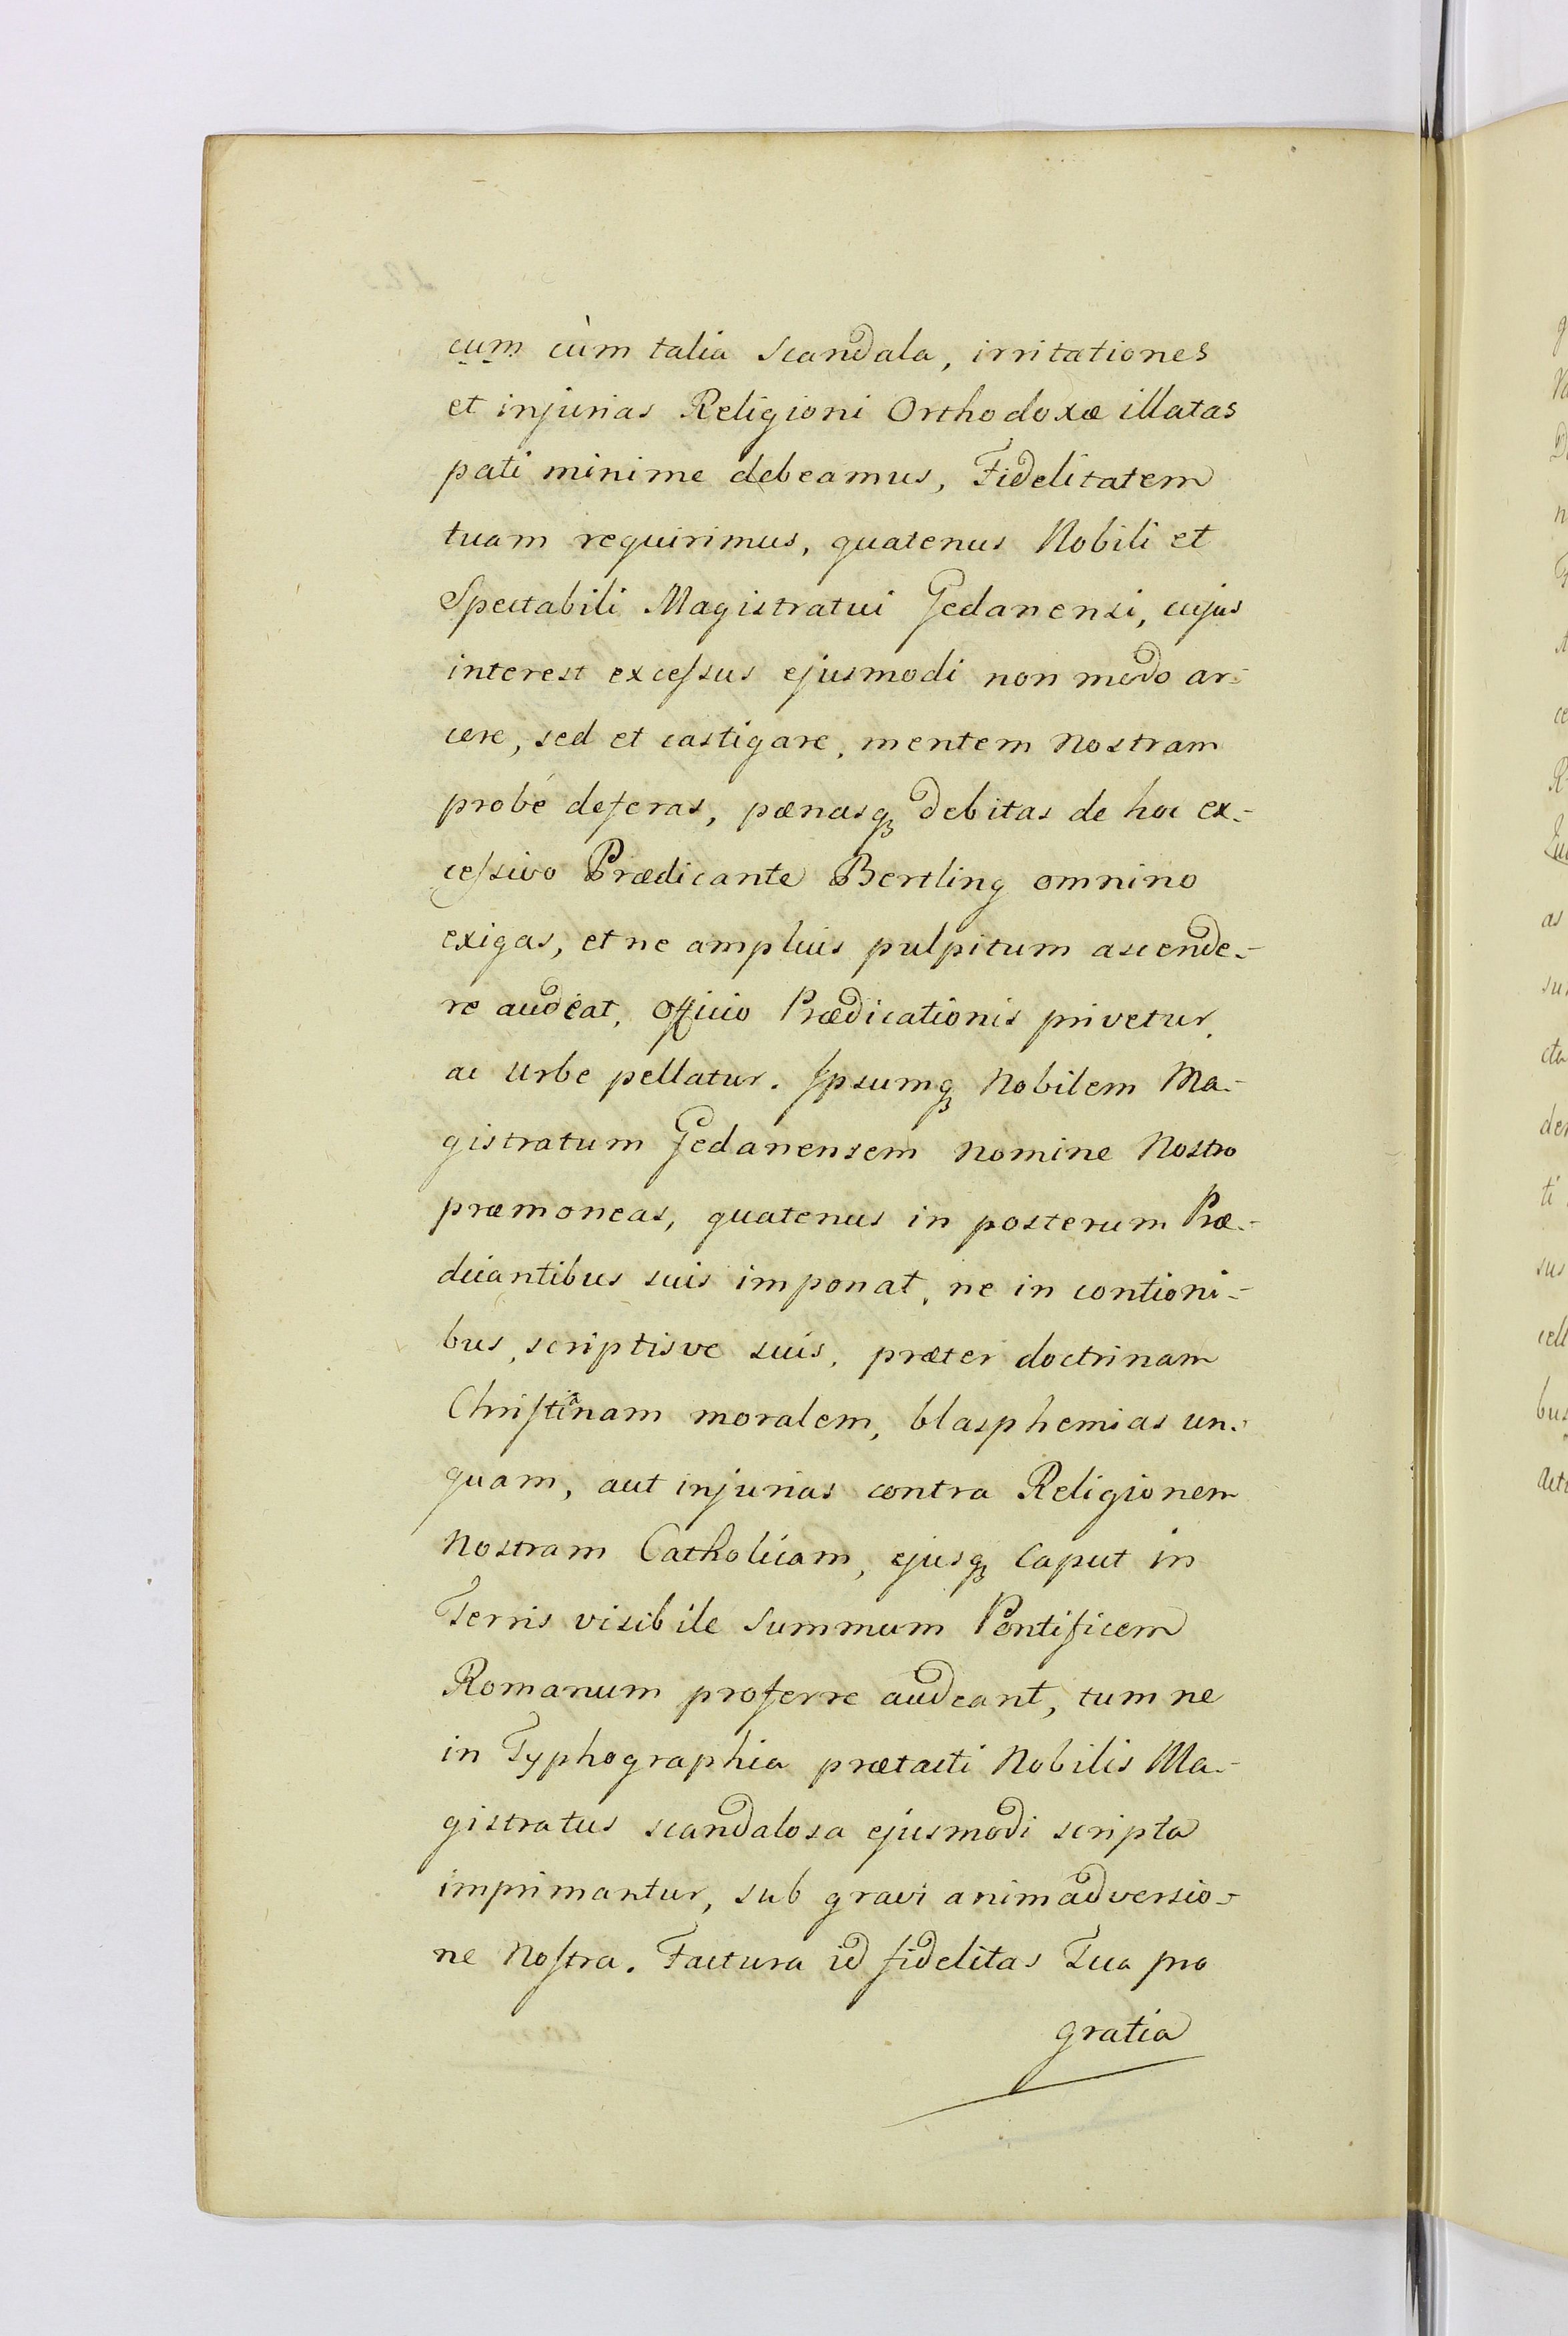 cum cùm talia Scandala, irritationes
et injurias Religioni Orthodoxæ illatas
pati minime debeamus, Fidelitatem
tuam requirimus, quatenus Nobili et
Spectabili Magistratui Gedanensi, cujus
interest exceſsus ejusmodi non modo ar-
cere, sed et castigare, mentem Nostram
probé deferas, pænasq₃ debitas de hoc ex-
ceſsivo Prædicante Bertling omnino
exigas, et ne amplius pulpitum ascende-
re audeat, Officio Prædicationis privetur,
ac Urbe pellatur. Ipsumq₃ Nobilem Ma-
gistratum Gedanensem Nomine Nostro
præmoneas, quatenus in posterum Præ-
dicantibus suis imponat, ne in contioni-
bus, scriptisve suis, præter doctrinam
Chriſtianam moralem, blasphemias un-
quam, aut injurias contra Religionem
Nostram Catholicam, ejusq₃ Caput in
Terris visibile Summum Pontificem
Romanum proferre audeant, tum ne
in Typhographia prætacti Nobilis Ma-
gistratus scandalosa ejusmodi scripta
imprimantur, sub gravi animadversio-
ne Noſtra. Factura id fidelitas Tua pro
gratia